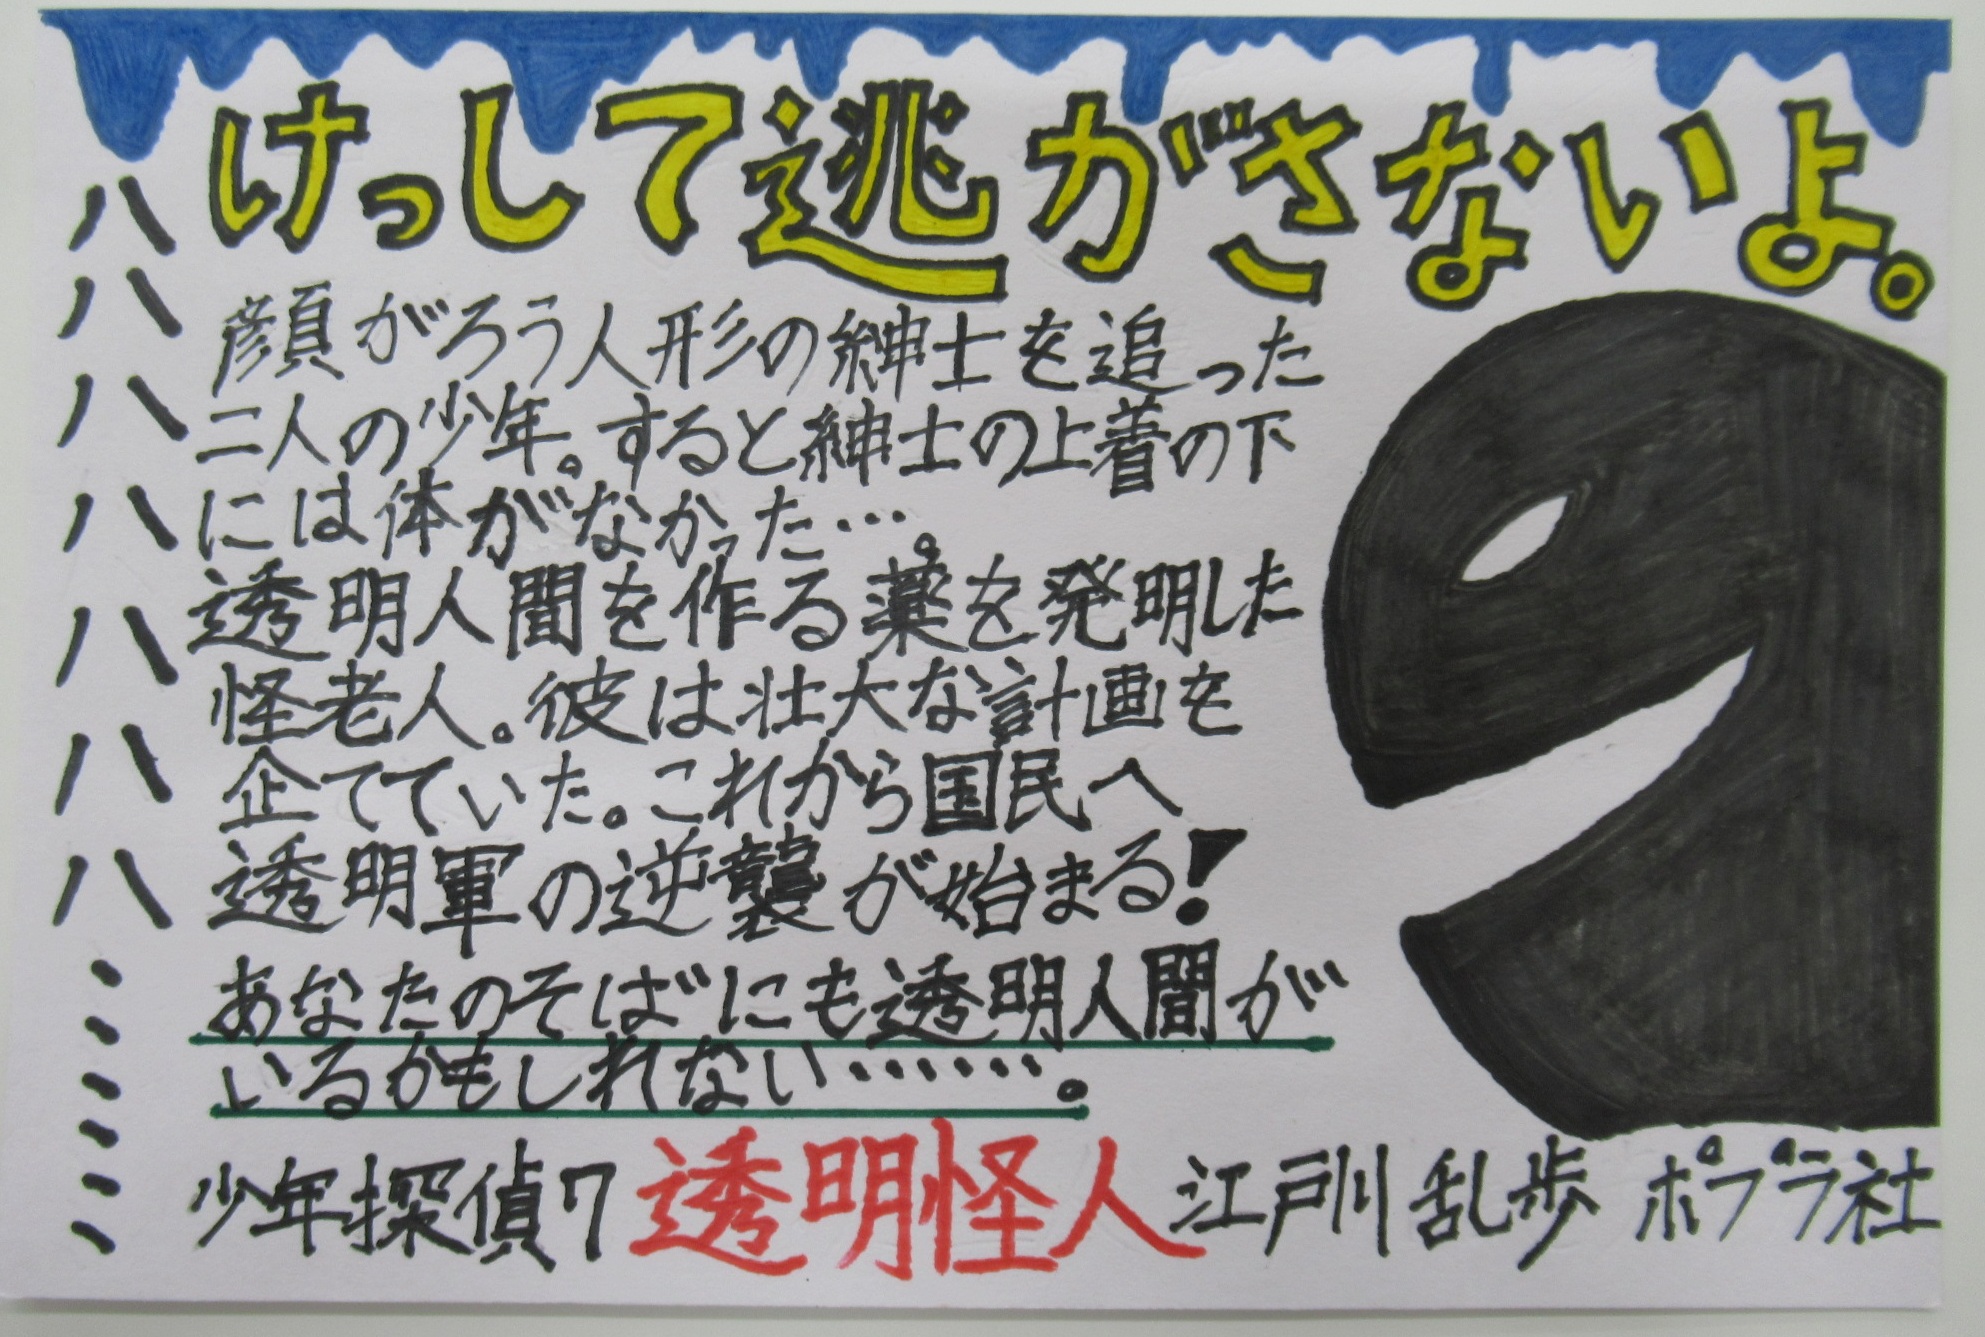 けっして逃がさないよ。
ハハハハハハハ……
顔がろう人形の紳士を追った
二人の少年。すると紳士の上着の下
には体がなかった…。
透明人間を作る薬を発明した
怪老人。彼は壮大な計画を
企てていた。これから国民へ
透明軍の逆襲が始まる!
あなたのそばにも透明人間が
いるかもしれない……。
少年探偵7 透明怪人 江戸川乱歩 ポプラ社